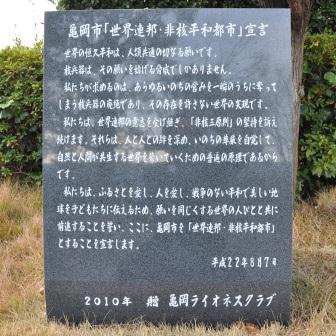 亀岡市「世界連邦・非核平和都市」宣言
世界の恒久平和は、人類共通の切なる願いです。
核兵器は、その願いを妨げる脅威でしかありません。
私たちが求めるのは、あらゆるいのちの営みを一瞬のうちに奪って
しまう核兵器の廃絶であり、その存在を許さない世界の実現です。
私たちは、世界連邦の意志を受け継ぎ、「非核三原則」の堅持を訴え
続けます。それらは、人と人との絆を深め、いのちの尊厳を自覚して、
自然と人間が共生する世界を築いていくための普遍の原理であるから
です。
私たちは、ふるさとを愛し、人を愛し、戦争のない平和で美しい地
球を子どもたちに伝えるため、願いを同じくする世界の人びとと共に
前進することを誓い、ここに、亀岡市を「世界連邦・非核平和都市」
とすることを宣言します。
平成22年8月7日
2010年 贈 亀岡ライオネスクラブ